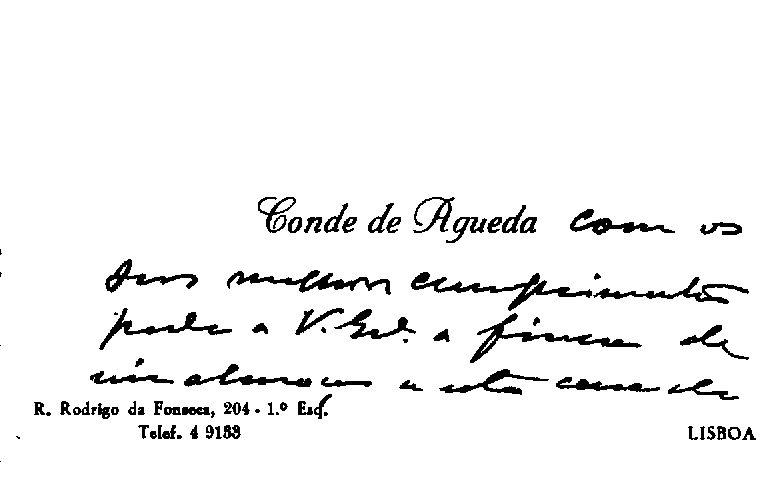 Conde de Agueda com os
seus melhores cumprimentos
pede a V. Ex.ª a fineza de
vir almoçar a esta casa de
R. Rodrigo da Fonseca, 204 - 1.º Esq.
Telef. 4 9183
LISBOA